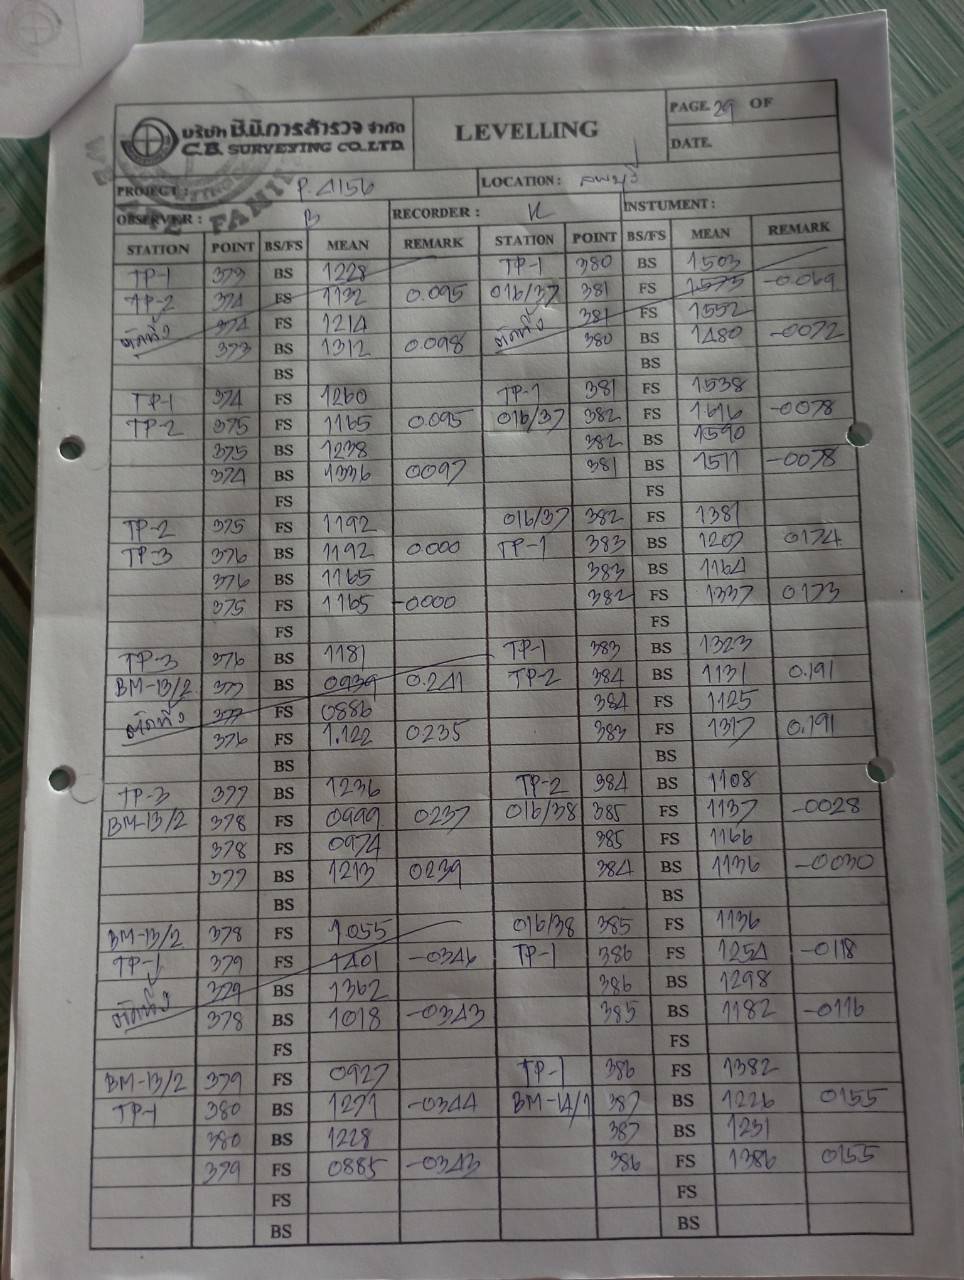 บริษัท ซี.บี.การสำรวจ จำกัด
C.B. SURVEYING CO.,LTD.
LEVELLING
PAGE. 29 OF
DATE.
PROJECT : P. 4156 LOCATION : ลพบุรี
OBSERVER : B RECORDER : K INSTUMENT :
STATION POINT BS/FS MEAN REMARK STATION POINT BS/FS MEAN REMARK
TP-1 373 BS 1228 TP-1 380 BS 1503
TP-2 374 FS 1132 0.095 016/37 381 FS 1573 -0.069
ตัดทิ้ง 374 FS 1214 ตัดทิ้ง 381 FS 1552
373 BS 1312 0.098 380 BS 1480 -0072
BS BS
TP-1 374 FS 1260 TP-1 381 FS 1538
TP-2 375 FS 1165 0.095 016/37 382 FS 1616 -0078
375 BS 1238 382 BS 1590
374 BS 1336 0097 381 BS 1511 -0078
FS FS
TP-2 375 FS 1192 016/37 382 FS 1381
TP-3 376 BS 1192 0.000 TP-1 383 BS 1207 0174
376 BS 1165 383 BS 1164
375 FS 1165 -0000 382 FS 1337 0173
FS FS
TP-3 376 BS 1181 TP-1 383 BS 1323
BM-13/2 377 BS 0939 0.241 TP-2 384 BS 1131 0.191
ตัดทิ้ง 377 FS 0886 384 FS 1125
376 FS 1.122 0235 383 FS 1317 0.191
BS BS
TP-3 377 BS 1236 TP-2 384 BS 1108
BM-13/2 378 FS 0999 0237 016/38 385 FS 1137 -0028
378 FS 0974 385 FS 1166
377 BS 1213 0239 384 BS 1136 -0030
BS BS
BM-13/2 378 FS 1055 016/38 385 FS 1136
TP-1 379 FS 1401 -0346 TP-1 386 FS 1254 -0118
ตัดทิ้ง 379 BS 1362 386 BS 1298
378 BS 1018 -0343 385 BS 1182 -0116
FS FS
BM-13/2 379 FS 0927 TP-1 386 FS 1382
TP-1 380 BS 1271 -0344 BM-14/1 387 BS 1226 0155
380 BS 1228 387 BS 1231
379 FS 0885 -0343 386 FS 1386 0155
FS FS
BS BS